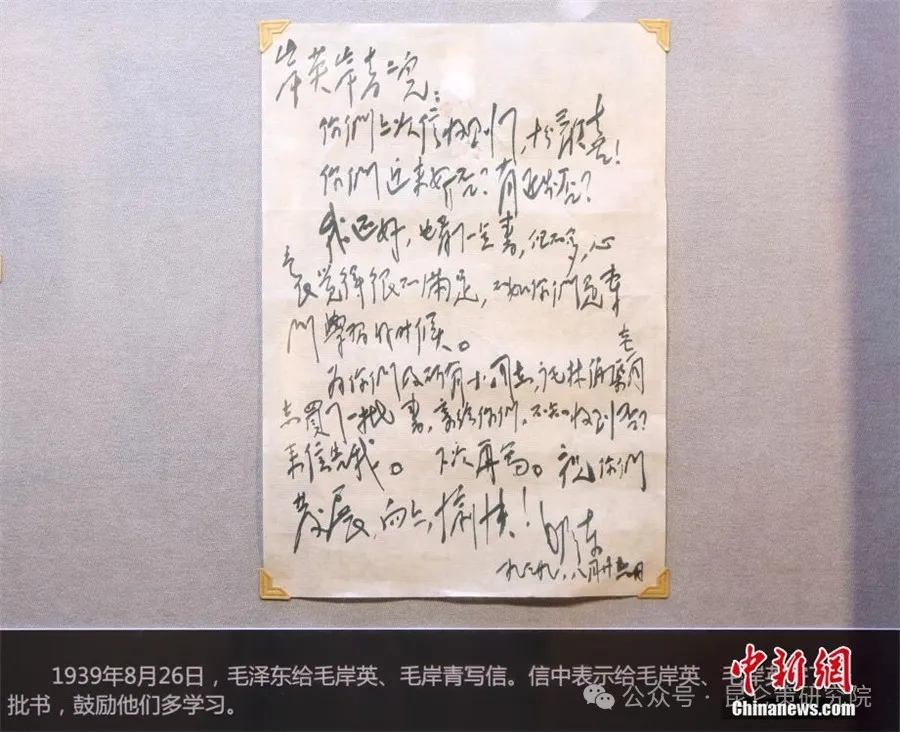 岸英岸青二兒：
你們上次信收到了，十分歡喜！
你們近来好否？有进步否？
我还好，也看了一点書，但不多，心
里觉得很不满足，不如你們是專
门學習的时候。
老
为你們及所有小同志，托林伯渠同
志買了一批書，寄给你們，不知收到否？
来信告我。下次再写。祝你們
發展，向上，愉快！
毛泽东
一九三九，八月廿六日
1939年8月26日，毛泽东给毛岸英、毛岸青写信。信中表示给毛岸英、毛岸
批书，鼓励他们多学习。
中新網
公众号 · 昆仑策研究院
Chinanews.com